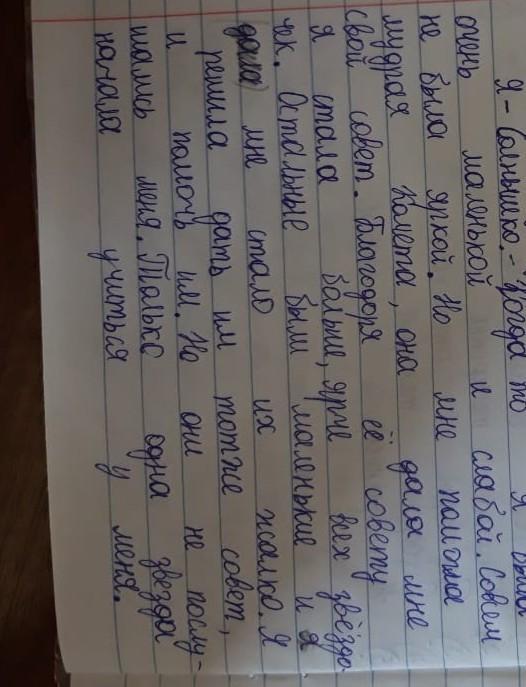 Я - Солнышко. - Когда то я была
очень маленькой и слабой. Совсем
не была яркой. Но мне помогла
мудрая Комета, она дала мне
свой совет. Благодоря её совету
я стала больше, ярче всех звёздо-
чек. Остальные были маленькие и
мне стало их жалко. Я
решила дать им тотже совет,
и помочь им. Но они не послу-
шались меня. Только одна звезда
начала учиться у меня.